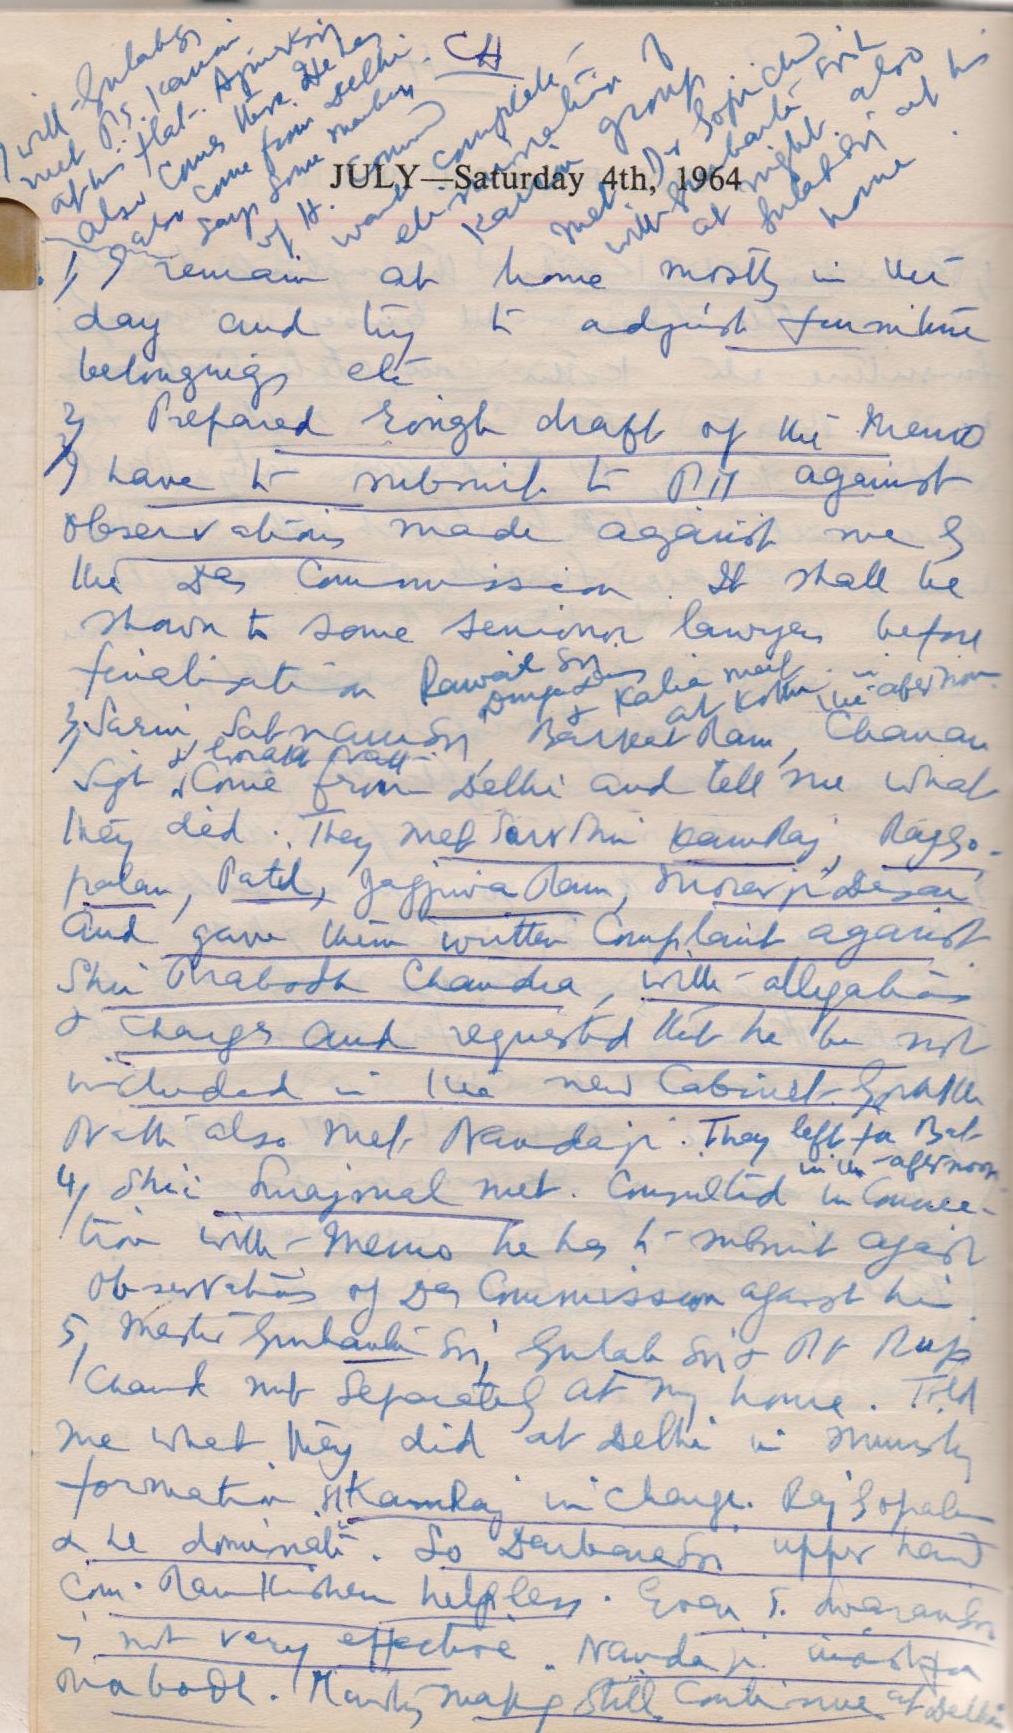 CH
I will Gulab Sr
met P.S. Kairon
at his flat. 
also comes there. He has
also come from Delhi.
says some members
of H. Command
want complete
elimination of
Kairon group
met Dr Gopi Chd
with Gurbanta Sri
at night. also
Gulab Sri at his
home.
JULY—Saturday 4th, 1964
1, I remain at home mostly in the
day and try to adjust furniture
belongings etc
2, Prepared rough draft of the Memo
I have to submit to PM against
observations made against me by
the Das Commission. It shall be
shown to some senior lawyer before
finalisation Rawail Sri,
& Kalia meet in
at Kothi the afternoon
3, Sarvi Satnam Sri, Barkat Ram, Chanan
Sigh & Gorakh Nath
come from Delhi and tell me what
they did. They met Sarv Shri KamRaj, Rajgo-
palan, Patil, Jagjiwan Ram, Morarji Desai
and gave them written Complaint against
Shri Prabodh Chandra, with allegations
& charges and requested that he be not
included in the new Cabinet. Gorakh
Nath also met Nandaji. They left for Bat
in the afternoon
4, Shri Surajmal met. Consulted in Connec-
tion with Memo he has to submit against
observations of Das Commission against him
5, Master Gurbanta Sri, Gulab Sri & Pt Rup
Chand met separately at my home. Told
me what they did at Delhi in ministry
formation. KamRaj in charge. Raj Gopalan
& he dominate. So Darbara Sri upper hand
Com. Ram Kishan helpless. Even S. Swaran Sri
is not very effective. Nandaji insist for
Prabodh. Ministry making still continue at Delhi